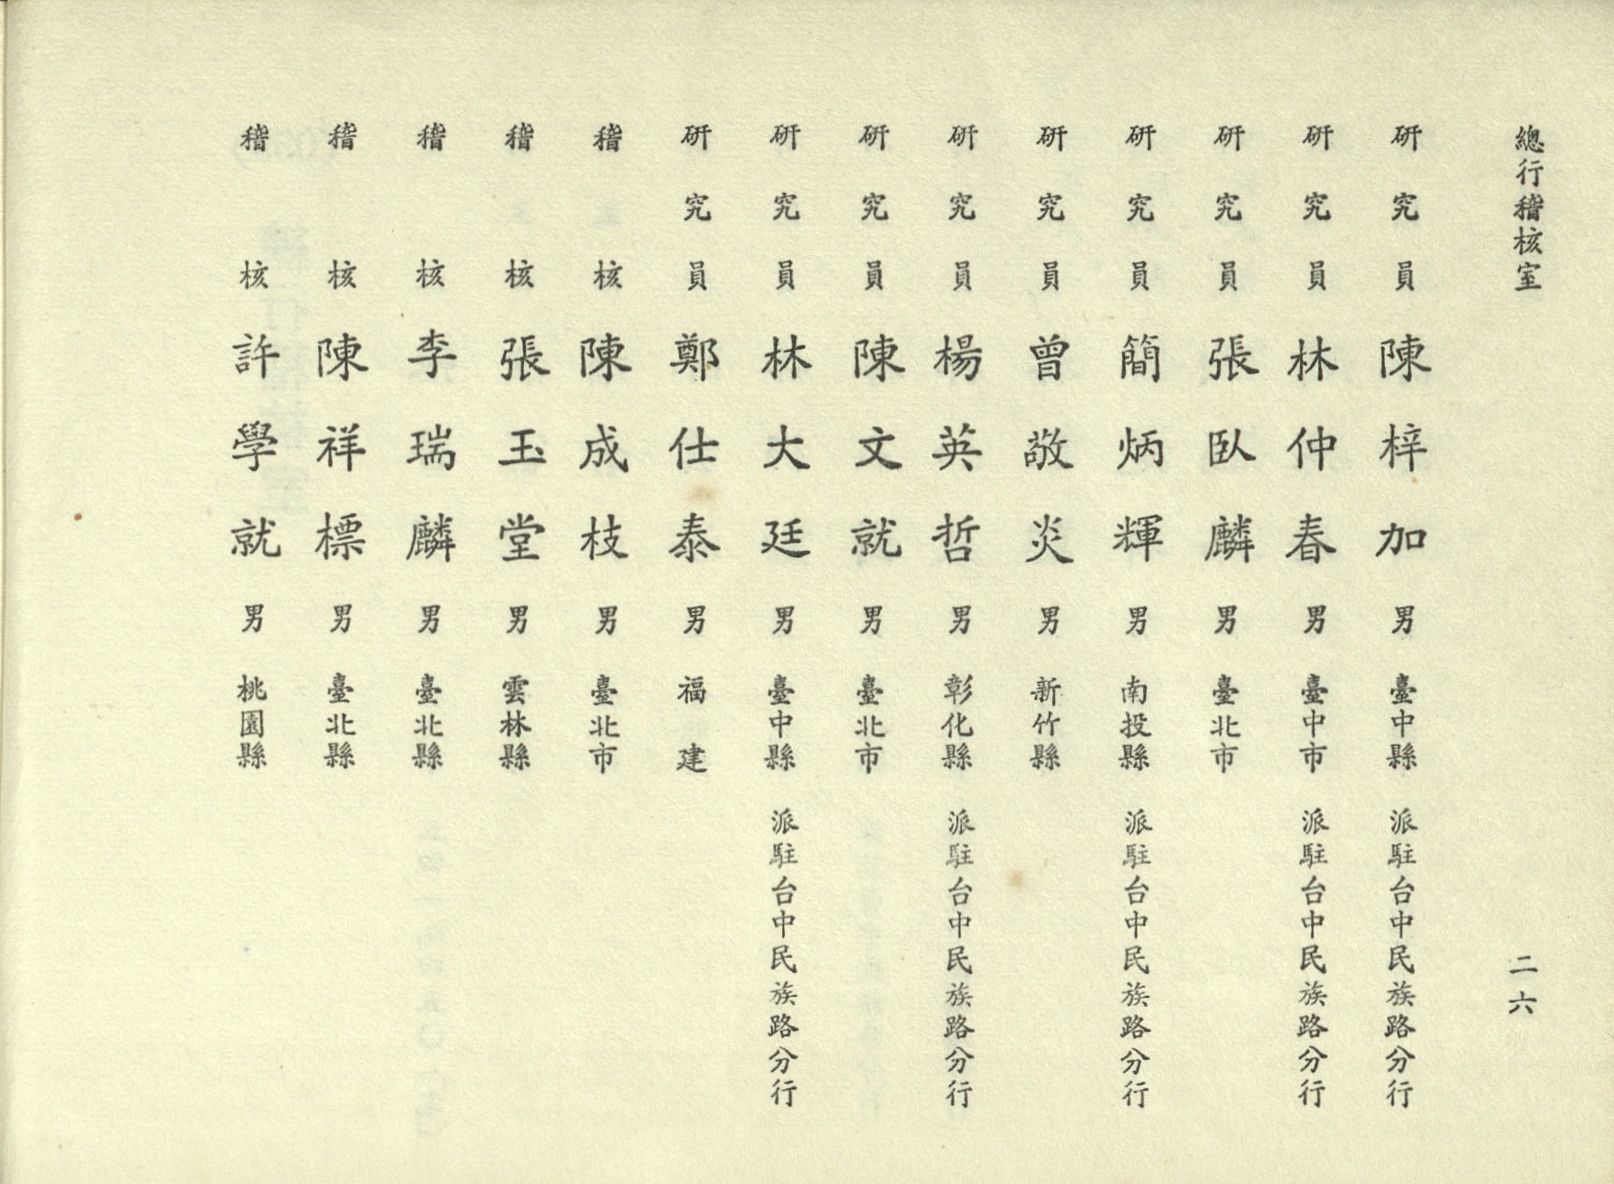 總行稽核室
二六
研究員 陳梓加 男 臺中縣 派駐台中民族路分行
研究員 林仲春 男 臺中市 派駐台中民族路分行
研究員 張臥麟 男 臺北市
研究員 簡炳輝 男 南投縣 派駐台中民族路分行
研究員 曾敬炎 男 新竹縣
研究員 楊英哲 男 彰化縣 派駐台中民族路分行
研究員 陳文就 男 臺北市
研究員 林大廷 男 臺中縣 派駐台中民族路分行
研究員 鄭仕泰 男 福建
稽核 陳成枝 男 臺北市
稽核 張玉堂 男 雲林縣
稽核 李瑞麟 男 臺北縣
稽核 陳祥標 男 臺北縣
稽核 許學就 男 桃園縣